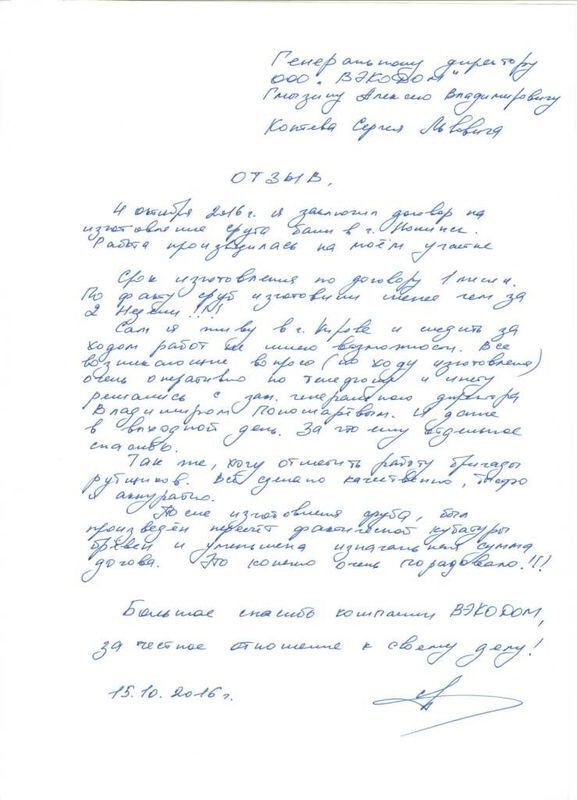 Генеральному директору
ООО "ВЭКОДОМ"
Глызину Алексею Владимировичу
Коптева Сергея Львовича
ОТЗЫВ,
4 октября 2016г. я заключил договор на
изготовление сруба бани в г.
Работа производилась на моём участке
Срок изготовления по договору 1 месяц.
По факту сруб изготовили менее чем за
2 недели!!!!
Сам я живу в г. Кирове и следить за
ходом работ не имею возможности. Все
возникающие вопросы (по ходу изготовления)
очень оперативно по телефону и
решались с зам. генерального директора
Владимиром И даже
в выходной день. За что ему отдельное
спасибо.
Так же, хочу отметить работу бригады
рубщиков. Всё сделано качественно, быстро
и аккуратно.
После изготовления сруба, был
произведён пересчёт фактической кубатуры
брёвен и уменьшена изначальная сумма
договора. Это конечно очень порадовало!!!
Большое спасибо компании ВЭКОДОМ,
за честное отношение к своему делу!
15.10.2016г.